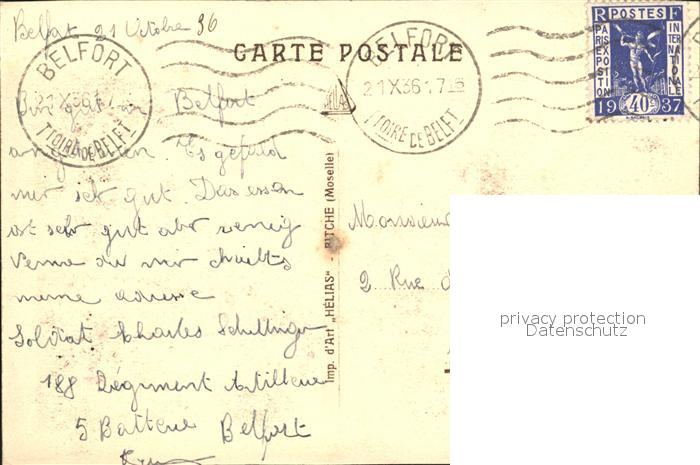 Belfort 21 Octobre 36
CARTE POSTALE
BELFORT
21 X 36
TTOIRE DE BELFT
BELFORT
21 X 36 17 15
TTOIRE DE BELFT
RF POSTES
PARIS EXPOSITION INTERNATIONALE
40
1937
Bin gut in Belfort
an Es gefald
mir sehr gut. Das essen
ist sehr gut abr wenig
Venne du mir
meine adresse
Soldat Charles Schillinger
188 Régiment Artillerie
5 Batterie Belfort
Imp. d'Art "HÉLIAS" - BITCHE (Moselle)
Monsieur
2 Rue d
privacy protection
Datenschutz